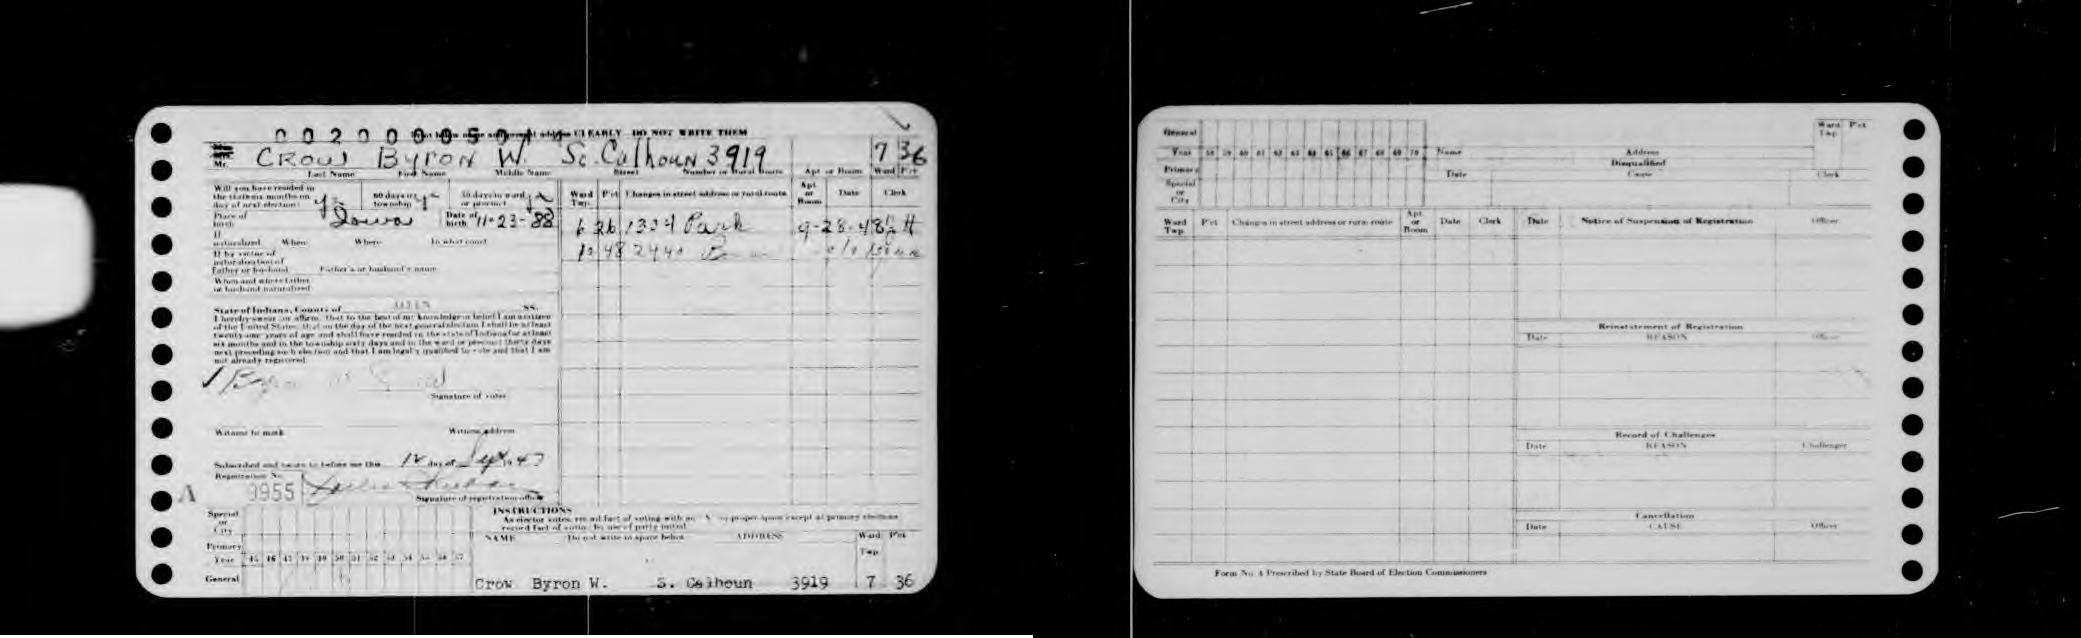 CLEARLY DO NOT WRITE THEM
Mr. CROW BYRON W. So. Calhoun 3919 7 36
Last Name First Name Middle Name Street Number or Rural Route Apt or Room Ward Pct
Will you have resided in
the state six months on
day of next election?
60 days in
township
30 days in ward
or precinct
Place of
birth Iowa
Date of
birth 11-23-88
If
naturalized When Where In what court
If by virtue of
naturalization of
Father or husband Father's or husband's name
When and where father
or husband naturalized
State of Indiana, County of SS.
I hereby swear or affirm, that to the best of my knowledge or belief I am a citizen
of the United States, that on the day of the next general election I shall be at least
twenty-one years of age and shall have resided in the state of Indiana for at least
six months and in the township sixty days and in the ward or precinct thirty days
next preceding such election and that I am legally qualified to vote and that I am
not already registered
Signature of voter
Witness to mark Witness address
Subscribed and sworn to before me this 12 day of Sept 19 47
Registration No.
9955
Signature of registration officer
A
Ward Twp. Pct Changes in street address or rural route Apt. or Room Date Clerk
6 26 1334 Park 9-28-48
10 48 2440
Special
or
City
Primary
Year 45 46 47 48 49 50 51 52 53 54 55 56 57
General
INSTRUCTIONS
As elector votes, record fact of voting with an X in proper space except at primary elections
record fact of voting by use of party initial
NAME Do not write in space below ADDRESS Ward Twp Pct
Crow Byron W. S. Calhoun 3919 7 36
General
Year 58 59 60 61 62 63 64 65 66 67 68 69 70
Primary
Special
or
City
Name Address
Ward Twp. Pct
Disqualified
Date Cause Clerk
Ward Twp. Pct Changes in street address or rural route Apt. or Room Date Clerk
Date Notice of Suspension of Registration Officer
Reinstatement of Registration
Date REASON Officer
Record of Challenges
Date REASON Challenger
Cancellation
Date CAUSE Officer
Form No. 4 Prescribed by State Board of Election Commissioners